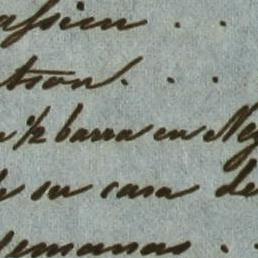 assien . . .
tson . . .
½ barra en Neg
de su casa de
semanas . .